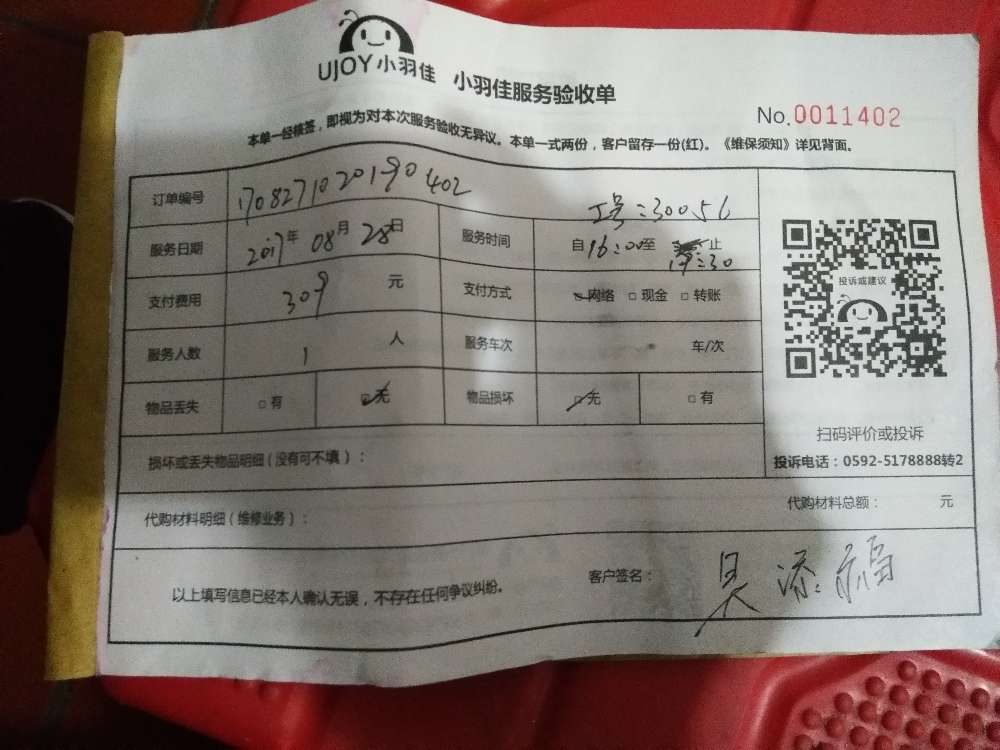 UJOY 小羽佳 小羽佳服务验收单
No.0011402
本单一经核签，即视为对本次服务验收无异议。本单一式两份，客户留存一份(红)。《维保须知》详见背面。
订单编号 17082710201990402
工号：30056
服务日期 2017年 08月 28日 服务时间 自16:00至 17:30止
支付费用 309 元 支付方式 □网络 □现金 □转账
服务人数 1 人 服务车次 车/次
物品丢失 □有 □无 物品损坏 □无 □有
损坏或丢失物品明细（没有可不填）：
代购材料明细（维修业务）： 代购材料总额： 元
以上填写信息已经本人确认无误，不存在任何争议纠纷。 客户签名： 吴添福
投诉或建议
扫码评价或投诉
投诉电话：0592-5178888转2